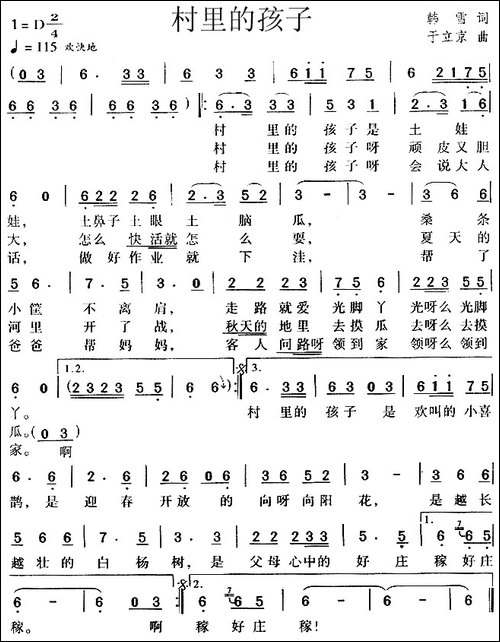 村里的孩子
1=D 2/4
♩=115 欢快地
韩 雪 词
于立京 曲
(0 3 | 6· 3 3 | 6 3 3 3 | 6 1 1 7 5 | 6 2 1 7 5 |
6 6 3 6 | 6 6 3 6) |: 6·3 3 3 | 5 3 1 | 2·3 1 6 |
村 里的 孩 子是 土 娃
村 里的 孩 子呀 顽 皮又胆
村 里的 孩 子呀 会 说大人
6 0 | 6 2 2 2 6 | 2·3 5 2 | 3 - | 3 - | 3 6 6 |
娃, 土鼻子土眼 土 脑 瓜, 桑 条
大, 怎么 快活就怎 么 耍, 夏 天的
话, 做好作业就 下 洼, 帮 了
5 6· | 7· 5 | 3· 0 | 2 2 2 3 | 7 5 6 | 2 2 3 5 5 |
小筐 不 离肩, 走 路就爱 光脚 丫 光呀么光脚
河里 开 了战, 秋天的 地里 去摸 瓜 去呀么去摸
爸爸 帮 妈妈, 客 人问路呀 领到 家 领呀么领到
1.2. 3.
6 0 | (2 3 2 3 5 5 | 6 6) :| 6· 3 3 | 6 3 0 3 | 6 1 1 7 5 |
丫。 村 里的 孩子 是 欢叫的小喜
瓜。(0 3)
家。 啊
6· 6 | 2· 6 | 2 1 2 | 6 6 | 2 3 5 2 | 3 - | 3 6 | 5 6 |
鹊, 是 迎 春 开放 的 向呀向阳 花, 是 越长
5 7 2 | 6 6 | 7· 5 | 3· 3 | 2 2 2 3 3 | 2 3 5 | 7 6 5 |
越壮的 白 杨 树, 是 父母心中的 好 庄 稼好庄
1.
6 - | 6 - | 6 0 | 0 3 :| 6 6 5 | 6 - | 6 - | 6 0 |
2.
稼。 啊 稼 好庄 稼!